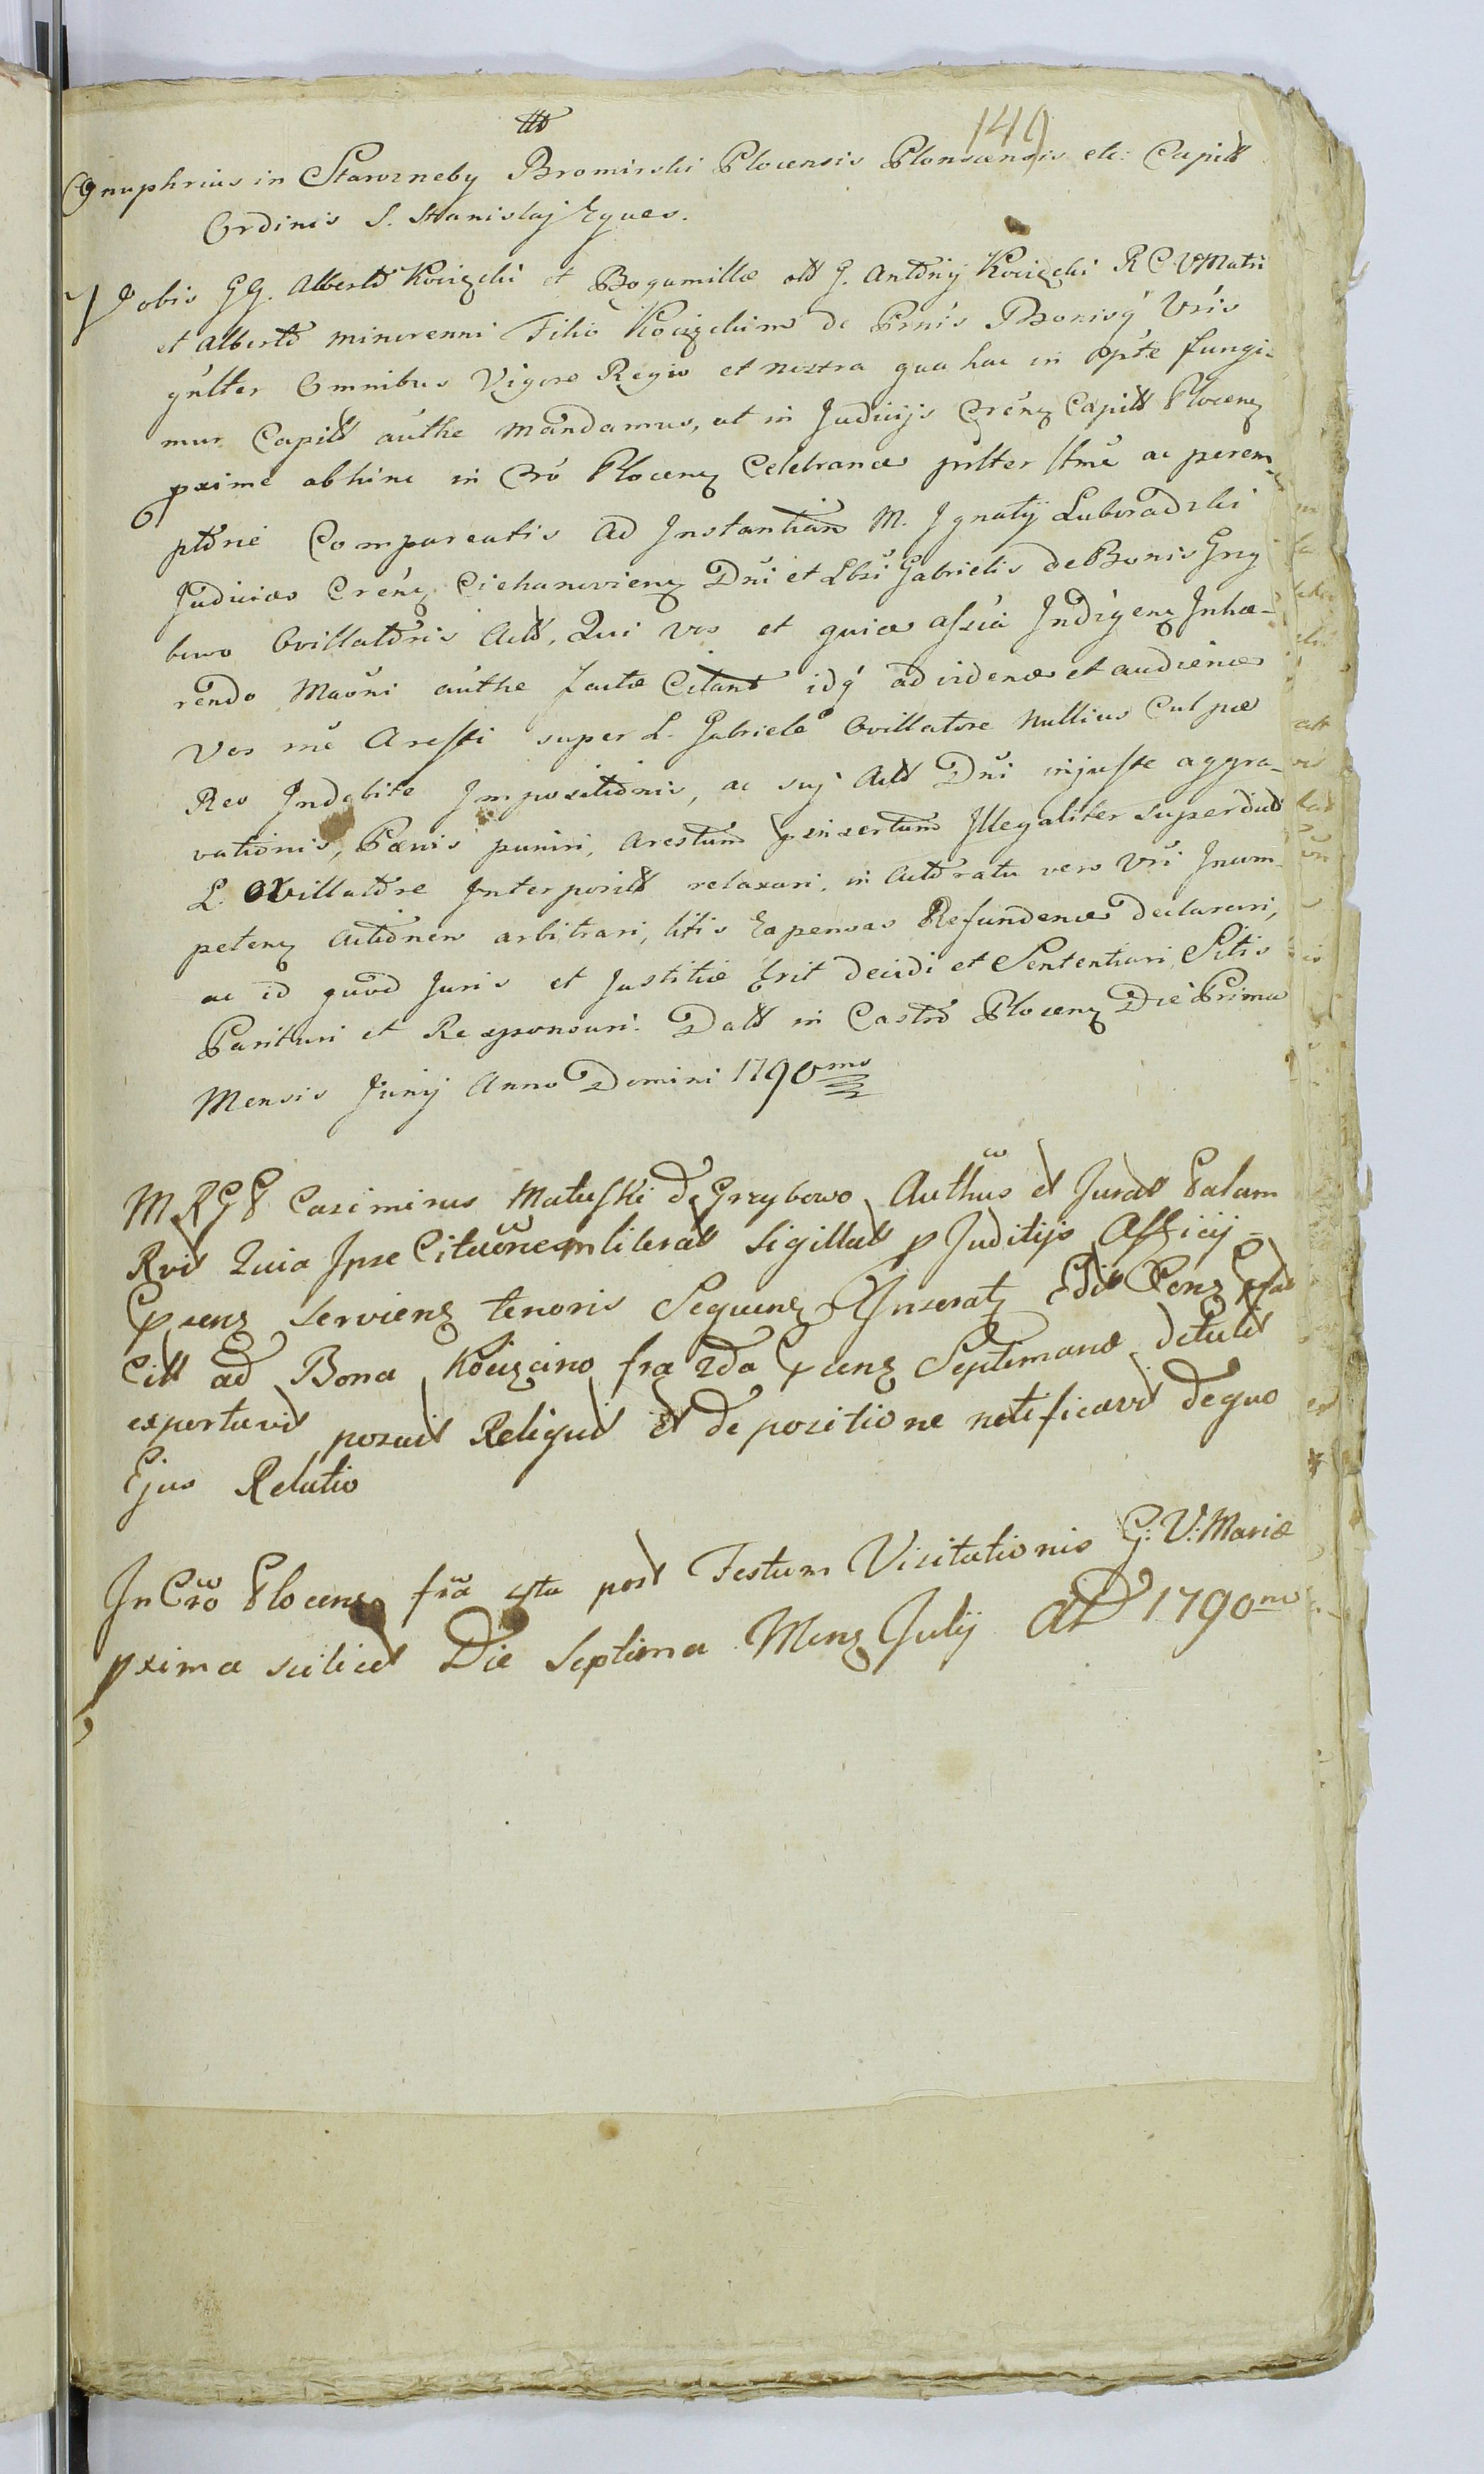 149
Onuphrius in Starozreby Bromirski Plocensis Plonscensis etc: Capitt
Ordinis S. Stanislaj Eques.
Vobis GG. Alberto Kocięcki et Bogumillæ ott G. Antony Kocięcki R C V Matri
et Alberto minorenni Filio Kocięckim de Prnis Bonisq Vris
gnlter Omnibus Vigore Regio et nostra qua hac in pte fungi-
mur Capitt authe Mandamus, ut in Judicijs Crenz Capitt Plocenz
pxime abhinc in Cro Plocenz Celebrandæ prlter ltme ac perem-
ptorie Compareatis Ad Instantiam M. Ignatij Luboradzki
Judicis Crenz Ciehanovienz Dni et Lbsi Gabrielis de Bonis Grzy
bowo Ovillatoris Actt, Qui Vos et quia assia Indigenz Inhæ-
rendo Maoni authe factæ Citant idq ad videndæ et audiendæ
Vos rne Aresti super L. Gabriele Ovillatore Nullius Culpæ
Reo Indebite Impositionis, ac suj Actt Dni injuste aggra-
vationis, Pænis puniri, Arestum pinsertum Illegaliter super dict
L. Ovillatore Interposit relaxari, in Actoratu vero Vri Incom-
petenz Actionem arbitrari, litis Expensas Refundendæ declarari,
ac id quod Juris et Justitiæ Erit decidi et Sententiari Sitis
Parituri et Responsuri. Datt in Castro Plocenz Die Prima
Mensis Junij Anno Domini 1790mo
M R G P Casimirus Matuski de Grzybowo Authus et Jurat Palam
Rvit Quia Ipse Citaonem literat Sigillat p Juditijs Officij
Psenz Servienz tenoris Sequenz
Citt ad Bona Kocięcino fra 2da Psenz Septimanæ detulit
exportavit posuit Reliquit et de positione notificavit de quo
Ejus Relatio
In Cro Plocenz fra 4ta post Festum Visitationis G: V: Mariæ
pxima scilicet Die Septima Menz Julij AD 1790mo